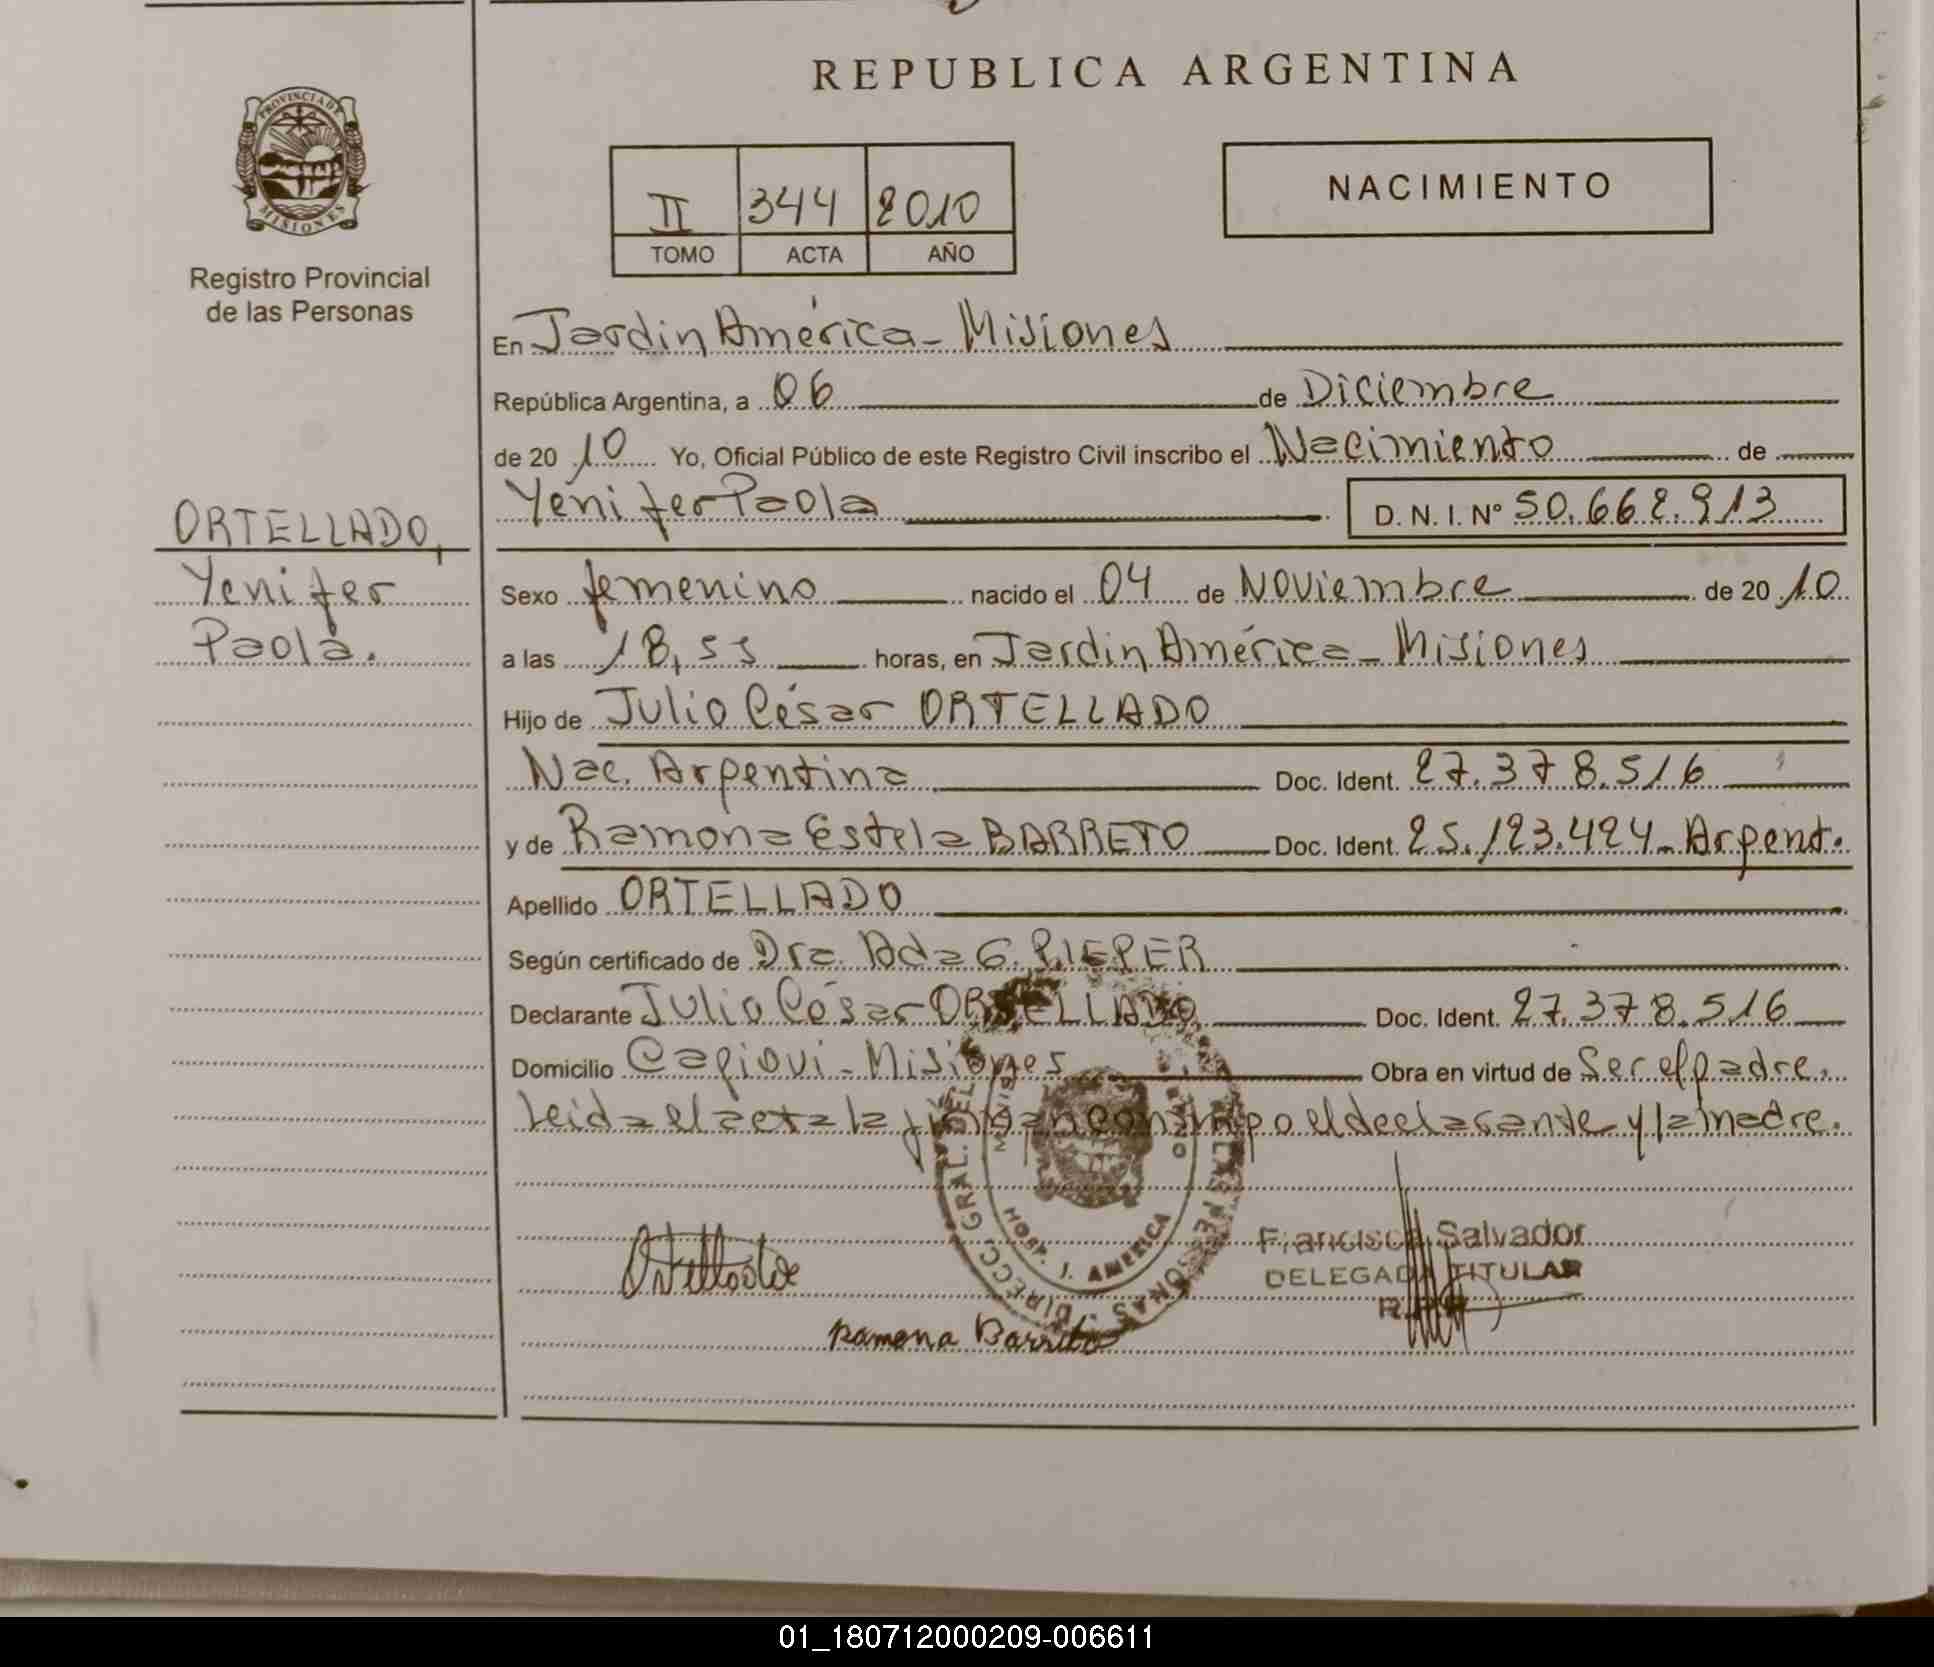 REPUBLICA ARGENTINA
PROVINCIA DE
MISIONES
Registro Provincial
de las Personas
II 344 2010
TOMO ACTA AÑO
NACIMIENTO
En Jardin América - Misiones
República Argentina, a 06 de Diciembre
de 20 10 Yo, Oficial Público de este Registro Civil inscribo el Nacimiento de
Yenifer Paola D. N. I. Nº 50.662.913
ORTELLADO,
Yenifer
Paola.
Sexo femenino nacido el 04 de Noviembre de 20 10
a las 18,55 horas, en Jardin América - Misiones
Hijo de Julio César ORTELLADO
Nac. Argentina Doc. Ident. 27.378.516
y de Ramona Estela BARRETO Doc. Ident. 25.123.424 - Argent.
Apellido ORTELLADO
Según certificado de Dra. Ada G. PIEPER
Declarante Julio César ORTELLADO Doc. Ident. 27.378.516
Domicilio Capiovi - Misiones Obra en virtud de Ser el padre.
Leida el acta la firman conmigo el declarante y la madre.
DIRECC. GRAL. DEL PERSONAS
HOSP. J. AMERICA
Francisca Salvador
DELEGADA TITULAR
R.P.P.
Ortellado
Ramona Barreto
01_180712000209-006611